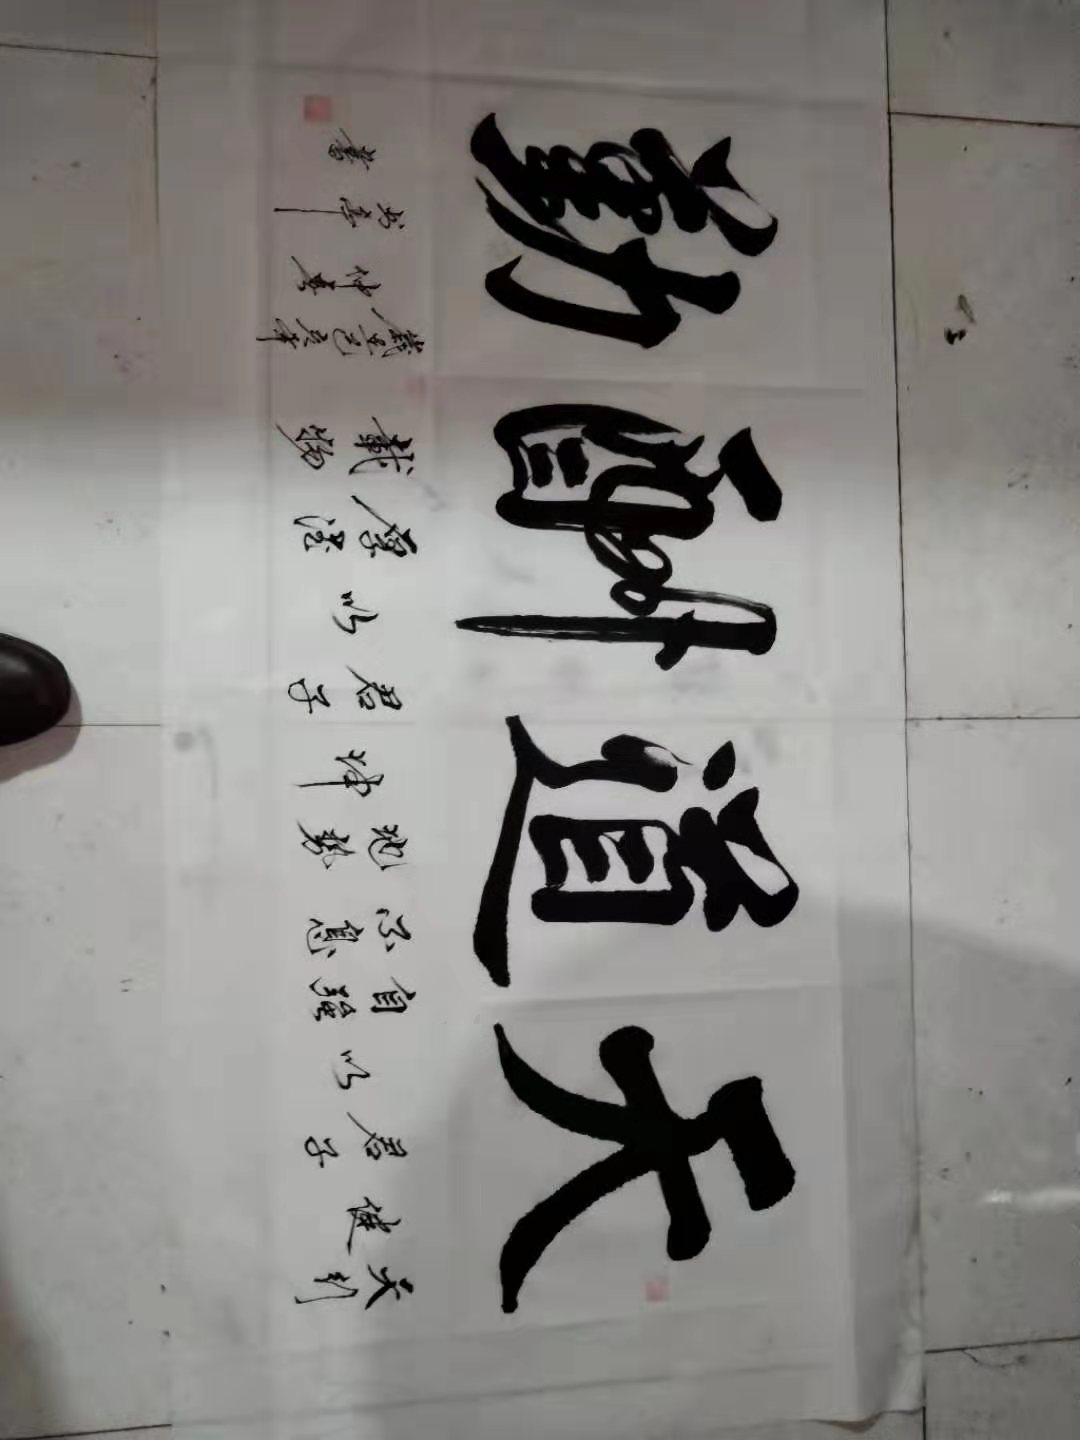 天道酬勤
天行
健
君子
以
自強
不息
地势
坤
君子
以
厚德
載物
己亥年
仲春
書